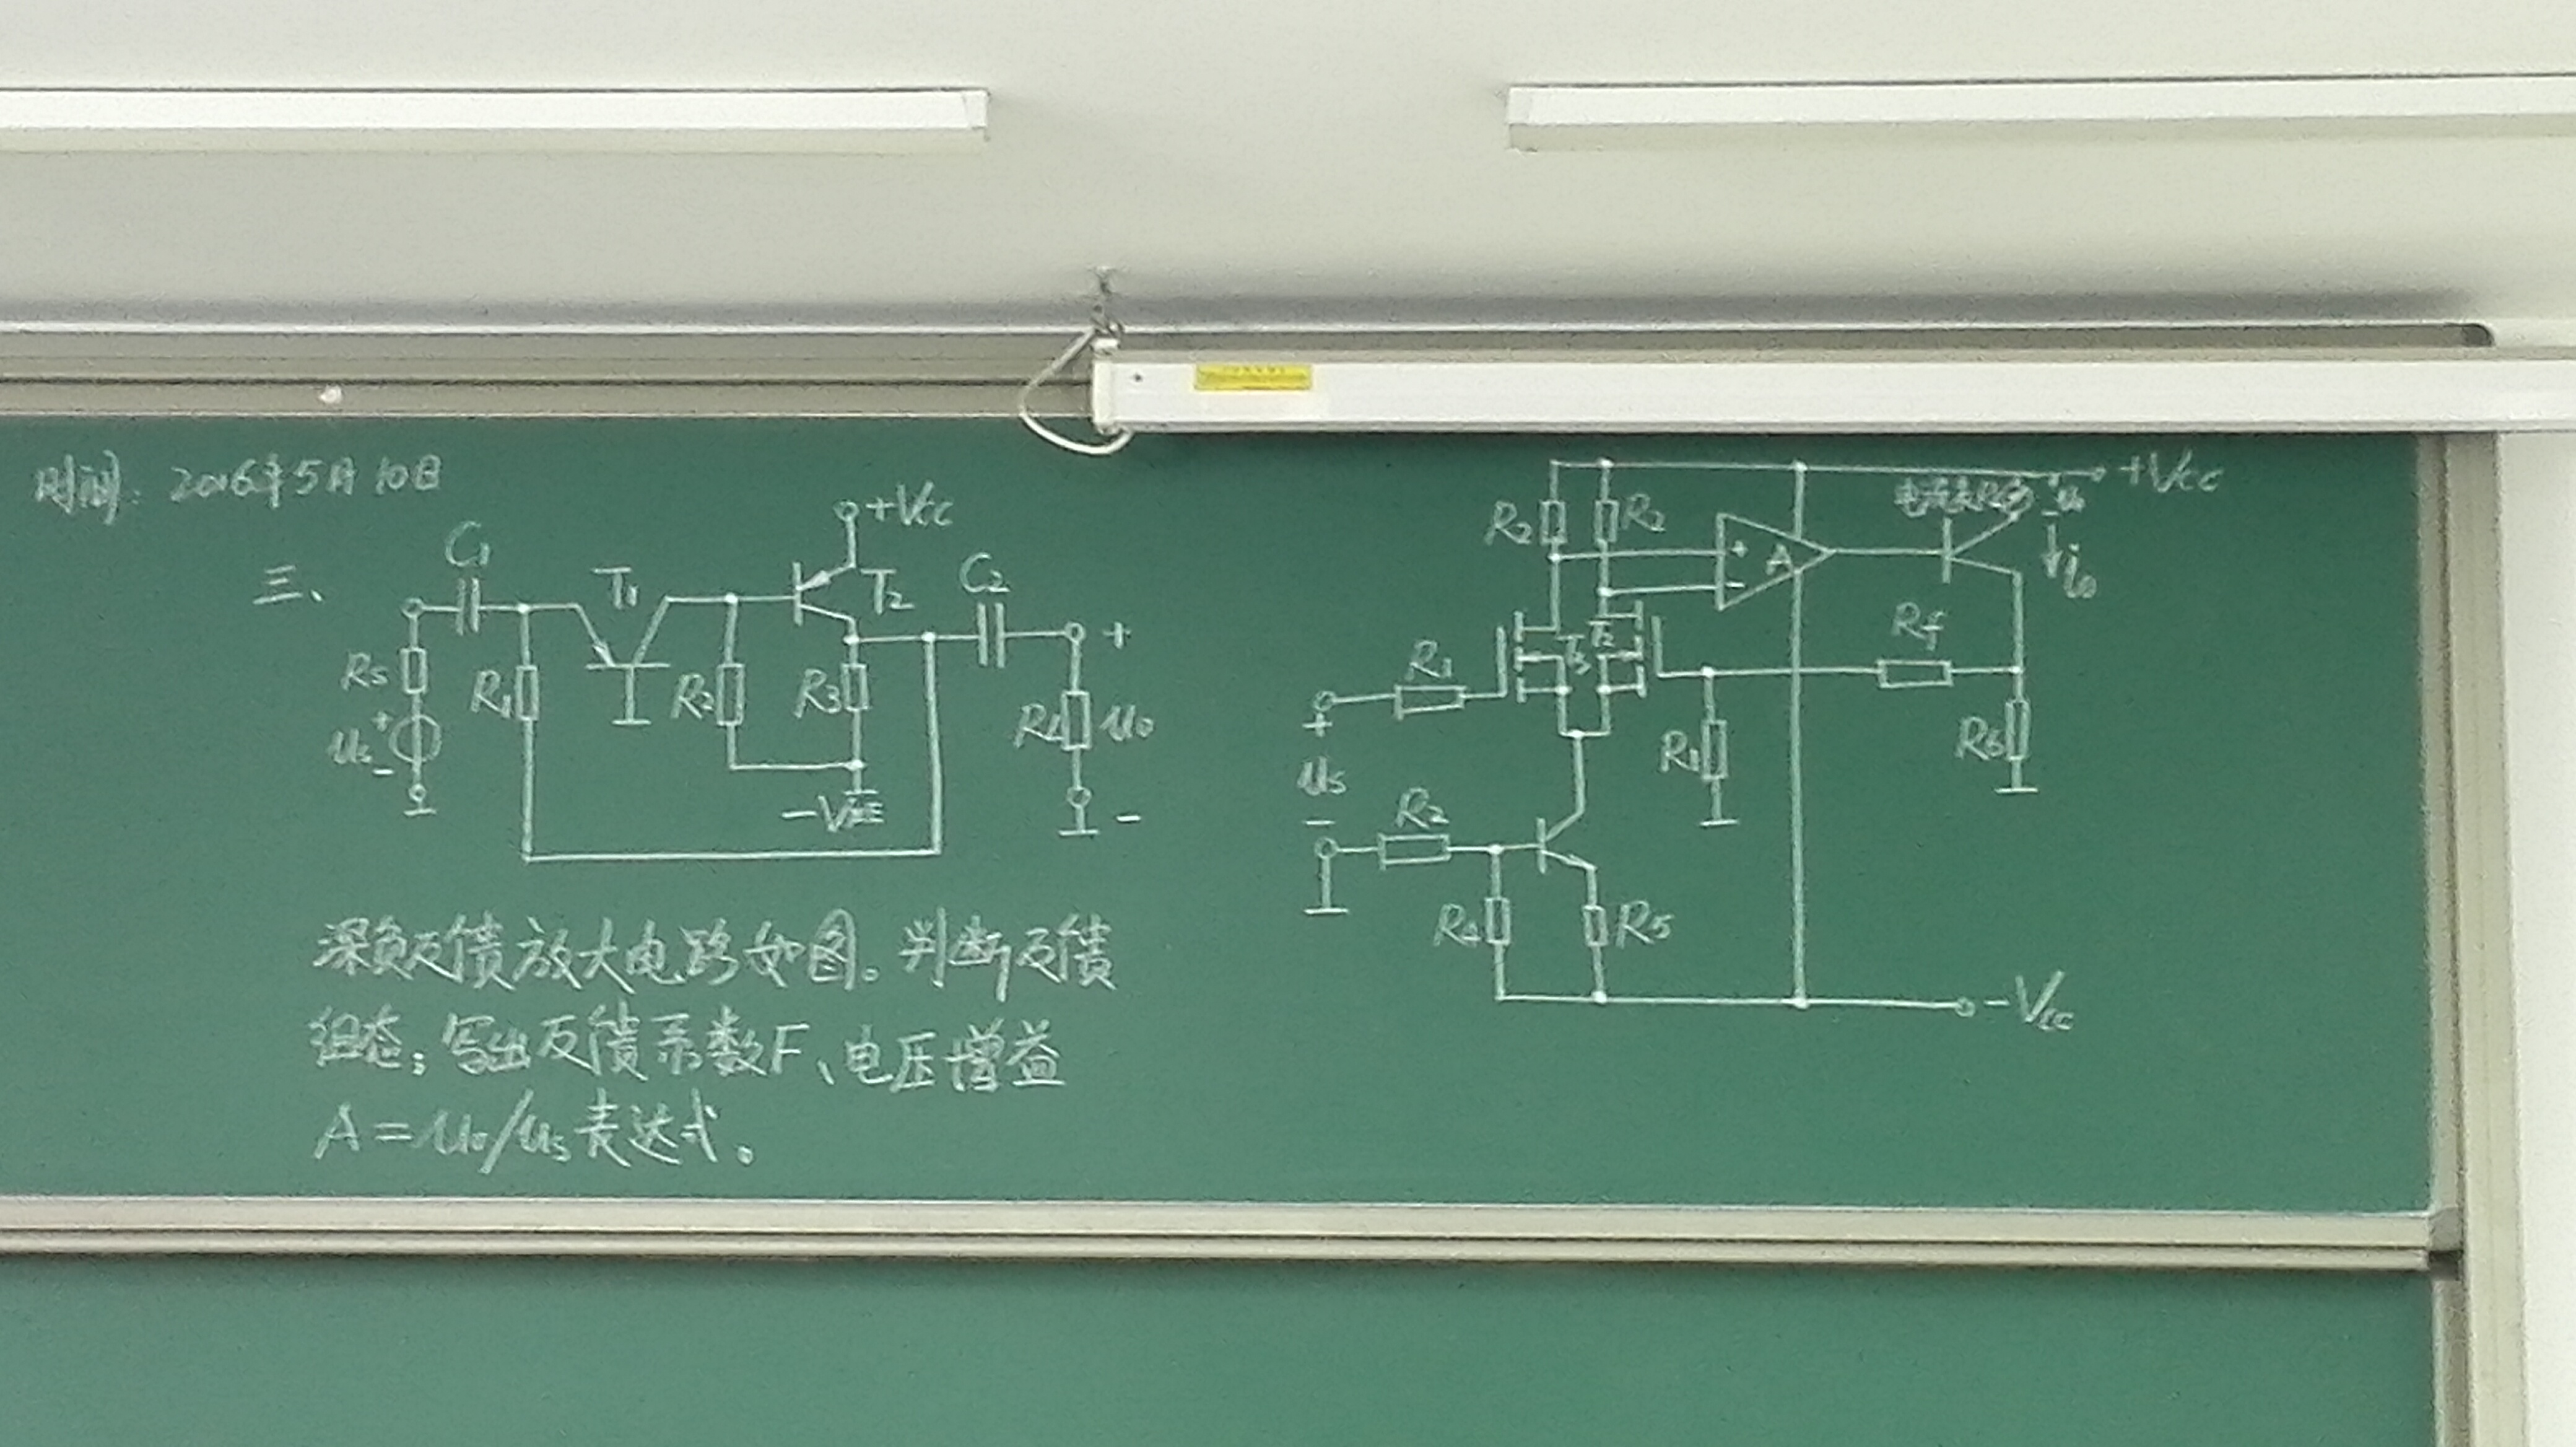 时间: 2016年5月10日
三、
C1
T1
+Vcc
T2
C2
+
Rs
R1
R2
R3
RL
uo
us
+
-
-VEE
-
深负反馈放大电路如图。判断反馈
组态;写出反馈系数F、电压增益
A=uo/us表达式。
+Vcc
R2
R2
+
-
A
io
R1
T2
Rf
+
us
-
R1
R6
R2
R4
R5
-Vcc